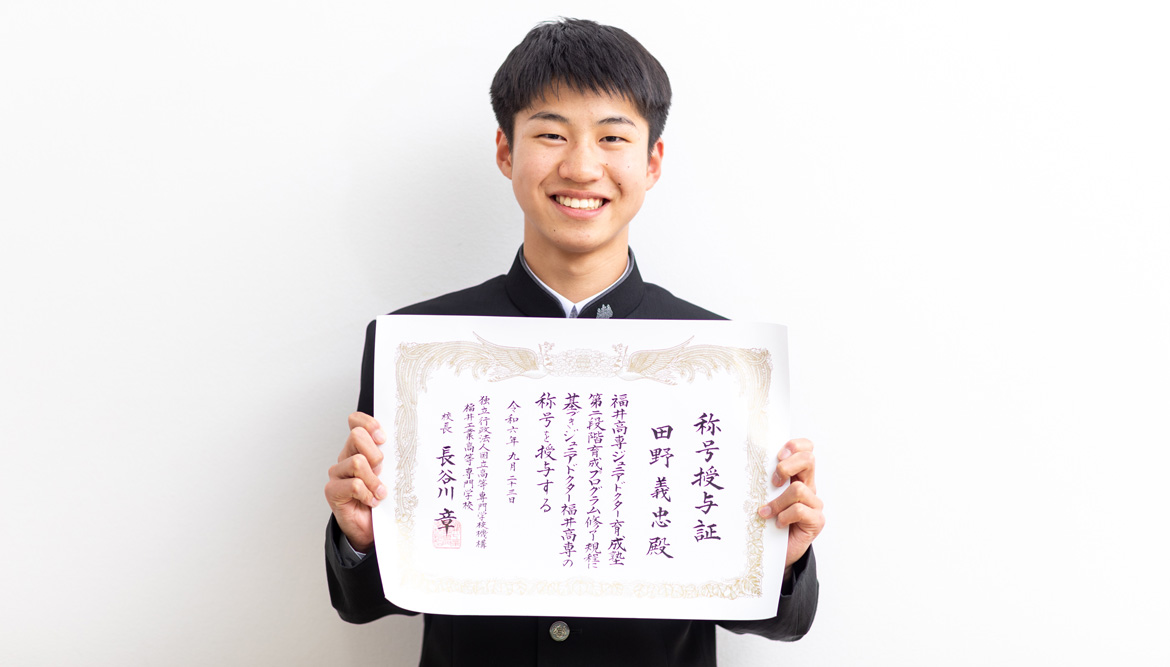 称号授与証
田野義忠殿
福井高専ジュニアドクター育成塾
第二段階育成プログラム修了規程に
基づきジュニアドクター福井高専の
称号を授与する
令和六年九月二十三日
独立行政法人国立高等専門学校機構
福井工業高等専門学校
校長 長谷川章